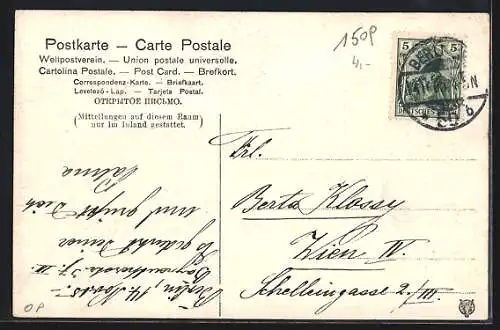 Postkarte — Carte Postale
Weltpostverein. — Union postale universelle.
Cartolina Postale. — Post Card. — Brefkort.
Correspondenz-Karte. — Briefkaart.
Levelező-Lap. — Tarjeta Postal.
ОТКРЫТОЕ ПИСЬМО.
(Mitteilungen auf diesem Raum
nur im Inland gestattet.)
1509
4,-
5 5
DEUTSCHES
BERLIN
Frl.
Berta Klossy
Wien IV.
Schelleingasse 2/III.
Berlin, 14.
So gedenkt Deiner
und grüßt Dich
OP